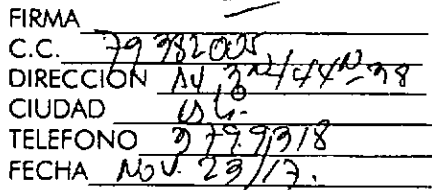 FIRMA
C.C. 79 382 005
DIRECCION AV 3N/44N-38
CIUDAD
TELEFONO 3799318
FECHA Nov. 23/17.